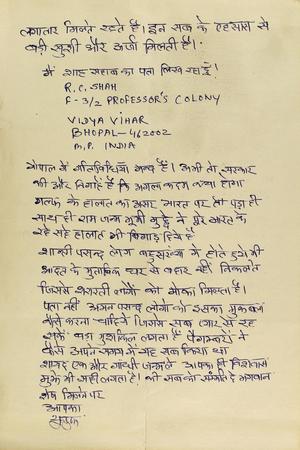 लगातार मिलते रहते हैं। इन सब के एहसास से
बड़ी खुशी और ऊर्जा मिलती है।
में शाह साहब का पता लिख रहा हूँ।
R.C. SHAH
F-3/2 PROFESSOR'S COLONY
VIDYA VIHAR
BHOPAL-462002
M.P. INDIA
भोपाल में गतिविधियाँ मन्द हैं। अभी तो सरकार
की ओर निगाहें हैं कि अगला कदम क्या होगा
गल्फ के हालात का असर भारत पर तो पड़ा ही
साथ ही राम जन्म भूमी मुद्दे ने पूरे भारत के
रहे सहे हालात भी बिगाड़ दिये हैं
शान्ती पसन्द लोग बहुसंख्या में होते हुये भी
आदत के मुताबिक घर से बाहर नहीं निकलते
जिससे शरारती लोगों को मौका मिलता है।
पता नहीं अमन पसन्द लोगों को इसका मुकाबला
कैसे करना चाहिये जिससे सब प्यार से रह
सकें बड़ा मुश्किल लगता है पैगम्बरों ने
कैसे अपने समय में यह सब किया था
शायद एक और गांधी जन्मले आपका ही विश्वास
मुझे भी सही लगता है। की सबको सन्मति दे भगवान
शेष मिलने पर
आपका